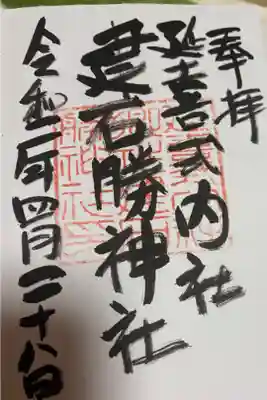 奉拝
延喜式内社
建石勝神社
令和二年四月二十八日